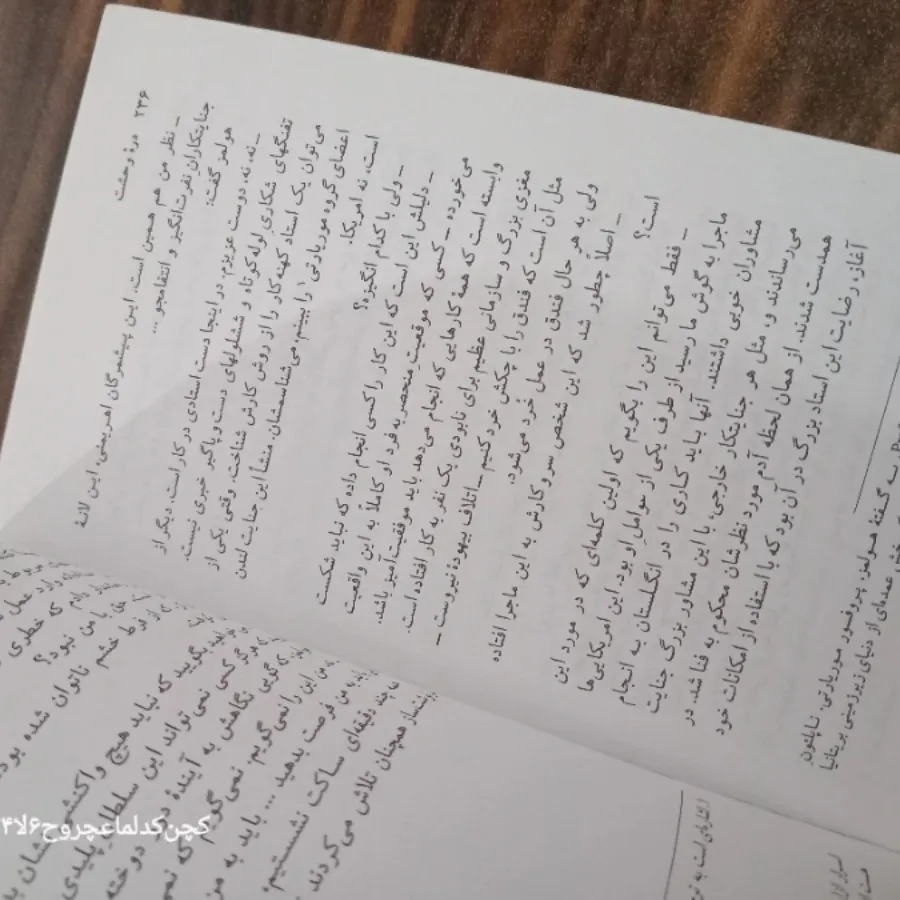 ۲۳۶ درهٔ وحشت
ـ نظر من هم همین است. این پیشمرگان اهریمن، این لانهٔ
جنایتکاران نفرت‌انگیز و انتقامجو ...
هولمز گفت:
ـ نه، نه، دوست عزیزم. در اینجا دست استادی در کار است. دیگر از
تفنگهای شکاری لوله‌کوتاه و ششلولهای دست و پاگیر خبری نیست.
می‌توان یک استاد کهنه‌کار را از روش کارش شناخت. وقتی یکی از
اعضای گروه موریارتی را ببینم، می‌شناسمشان. منشأ این جنایت لندن
است، نه امریکا.
ـ ولی با کدام انگیزه؟
ـ دلیلش این است که این کار را کسی انجام داده که نباید شکست
می‌خورده ـ کسی که موقعیت منحصر به فرد او کاملاً به این واقعیت
وابسته است که همهٔ کارهایی که انجام می‌دهد باید موفقیت‌آمیز باشد.
مغزی بزرگ و سازمانی عظیم برای نابودی یک نفر به کار افتاده است.
مثل آن است که فندق را با چکش خرد کنیم ـ اتلاف بیهودهٔ نیروست ـ
ولی به هر حال فندق در عمل خُرد می‌شود.
ـ اصلاً چطور شد که این شخص سر و کارش به این ماجرا افتاده
است؟
ـ فقط می‌توانم این را بگویم که اولین کلمه‌ای که در مورد این
ماجرا به گوش ما رسید از طرف یکی از عوامل او بود. این امریکایی‌ها
مشاوران خوبی داشتند. آنها باید کاری را در انگلستان به انجام
می‌رساندند و، مثل هر جنایتکار خارجی، با این مشاور بزرگ جنایت
همدست شدند. از همان لحظه آدم مورد نظرشان محکوم به فنا شد. در
آغاز، رضایت این استاد بزرگ در آن بود که با استفاده از امکانات خود
به گفتهٔ هولمز، پروفسور موریارتی، ناپلئون
عده‌ای از دنیای زیرزمینی بریتانیا
که خطری
با من نبود؟
از فرط خشم ناتوان شده بود
بگویید که نباید هیچ واکنشی نشان
کسی نمی‌تواند این سلطان پلیدی
نگاهش به آیندهٔ دور دوخته
این را نمی‌گویم. نمی‌گویم که
من فرصت بدهید ... باید به من
چند دقیقه‌ای ساکت نشستیم،
همچنان تلاش می‌کردند
کچن‌کدلماعچروح۴لا۶